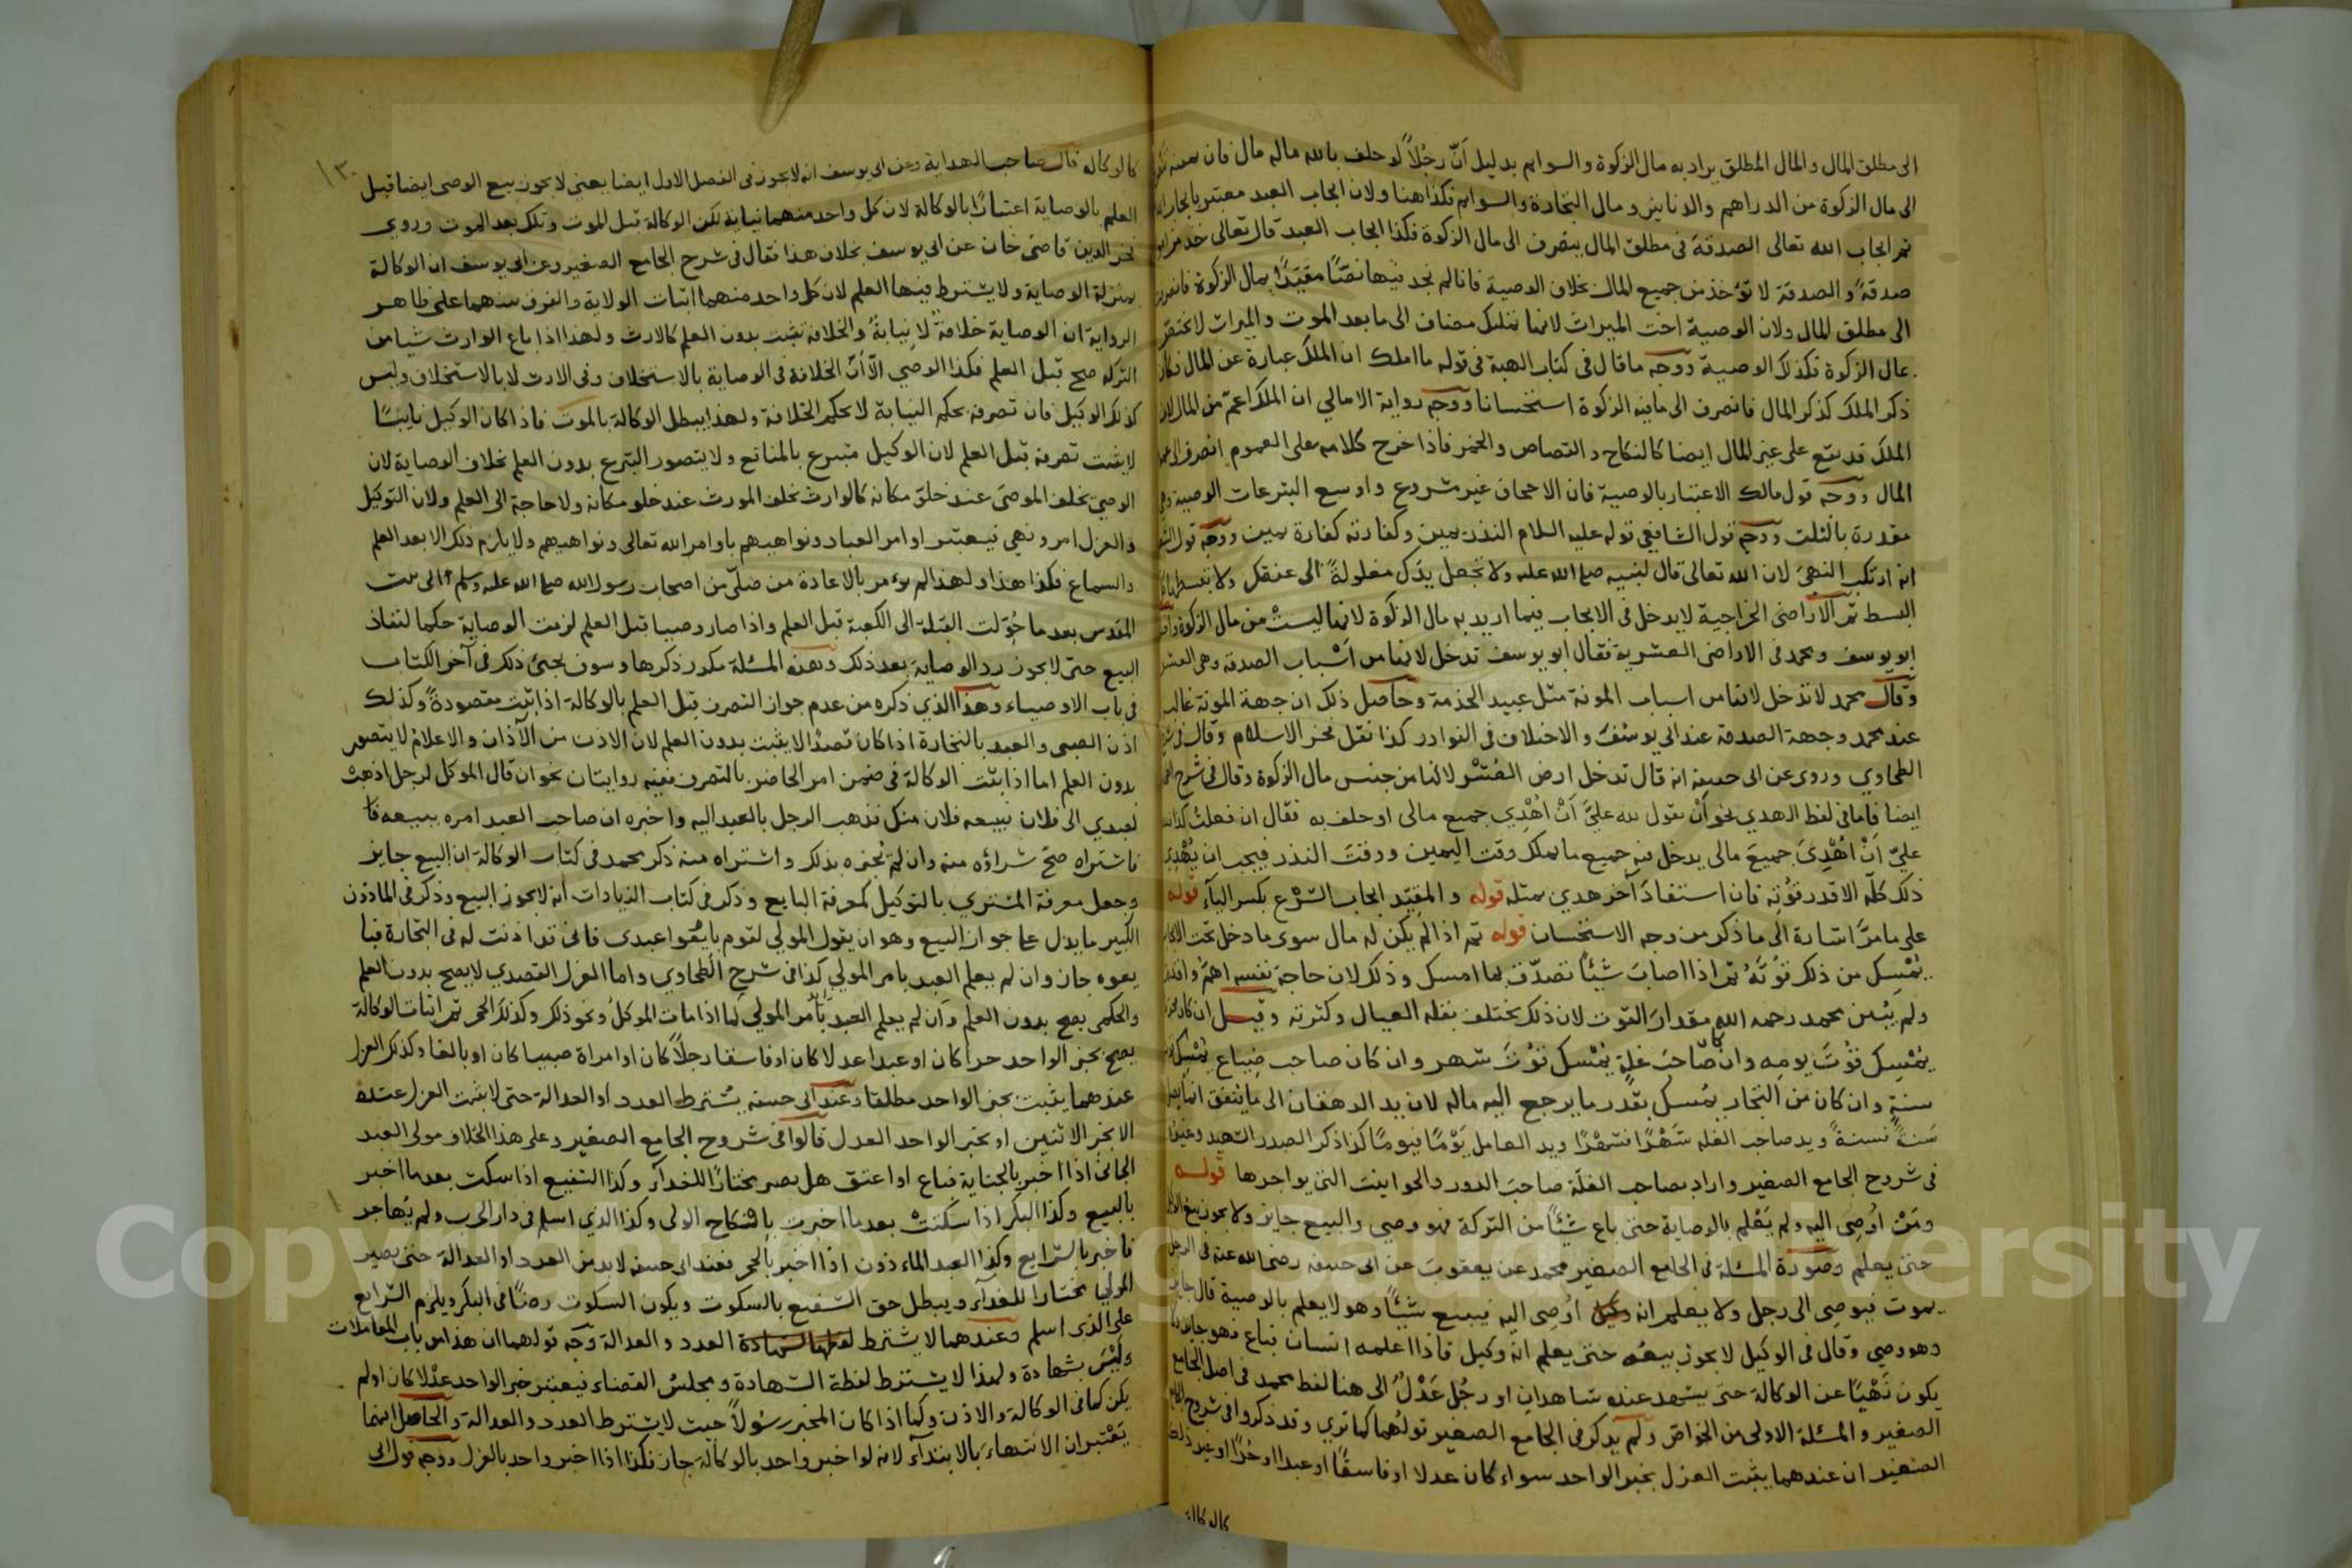 الى مطلق المال والمال المطلق يراد به مال الزكوة والسوايم بدليل اَنّ رجُلاً لو حلف بالله ماله مال فان
الى مال الزكوة من الدراهم والدنانير ومال التجارة والسوايم فكذا هنا ولان ايجاب العبد معتبر بايجاب الله
ثم ايجاب الله تعالى الصدقة فى مطلق المال ينصرف الى مال الزكوة فكذا ايجاب العبد قال تعالى خذ من
صدقةً والصدقة لا تؤخذ من جميع المال بخلاف الوصية فانا لم نجد فيها نصّا مقيّدًا بمال الزكوة
الى مطلق المال ولان الوصية اخت الميراث لانها تمليك مضاف الى ما بعد الموت والميراث لا يختصّ
بمال الزكوة فكذلك الوصية ووجه ما قال فى كتاب الهبة فى قوله ما املك ان الملك عبارة عن المال
ذكر الملك كذكر المال فانصرف الى مافيه الزكوة استحسانا ووجه رواية الامالي ان الملك اعمّ من المال لان
الملك قد يقع على غير المال ايضا كالنكاح والقصاص والخمر فاذا خرج كلامه على العموم انصرف الى
المال ووجه قول مالك الاعتبار بالوصية فان الاجحاف غير مشروع واوسع التبرعات الوصية وهى
مقدرة بالثلث ووجه قول الشافعي قوله عليه السلام النذر يمين وكفارته كفارة يمين ووجه قول
انه ارتكب النهى لان الله تعالى قال لنبيه صلى الله عليه ولا تجعل يدك مغلولةً الى عنقك ولا تبسطها كل
البسط ثم الاراضى الخراجية لا يدخل فى الايجاب فيما اريد به مال الزكوة لانها ليستْ من مال الزكوة
ابو يوسف ومحمد فى الاراضى العشرية فقال ابو يوسف تدخل لانها من اسباب الصدقة وهى العشر
وقال محمد لا تدخل لانها من اسباب المونة مثل عبيد الخدمة وحاصل ذلك ان جهة المونة غالبة
عند محمد وجهة الصدقة عند ابى يوسُف والاختلاف فى النوادر كذا نقل فخر الاسلام وقال فى
الطحاوي وروى عن ابى حنيفه انه قال تدخل ارض العُشْر لانها من جنس مال الزكوة وقال فى شرح
ايضا فاما فى لفظ الهدي نحو اَنْ يقول لله عليَّ اَنْ اُهْدِي جميع مالى او حلف به فقال ان فعلتُ كذا
عليّ اَنْ اُهْدِىَ جميعَ مالى يدخل فيه جميع ما يملك وقت اليمين ووقتَ النذر فيجب ان يُهْدِىَ
ذلك كلّه الا قدر قُوْتِه فان استفادَ آخر هدي بمثله قوله والمقيّد ايجاب الشَّرْع بكسر اليآء قوله
على مامرّ اشارة الى ما ذكر من وجه الاستحسان قوله ثم اذا لم يكن له مال سوى ما دخل تحت
يُمْسِك من ذلك قُوْتَهُ ثم اذا اصابَ شيئًا تصدّق بما امسك وذلك لان حاجة نفسه اهمّ
ولم يُبيّن محمد رحمه الله مقدارَ القوت لان ذلك يختلف بقلة العيال وكثرته وقيل ان كان
يُمْسِك قوْتَ يومِه وان كان صَاحبَ غلةٍ يُمْسك قوْتَ شهر وان كان صاحب ضياع يُمْسِك
سنةٍ وان كان من التجار يُمسك بقدر ما يرجع اليه ماله لان يد الدهقان الى ما يُنفق انما
سَنةً فسنةً ويد صاحب الغله شَهْرًا فشهْرًا ويد العامل يَوْمًا فيومًا كذا ذكر الصدر الشهيد وغيره
فى شروح الجامع الصغير واراد بصاحب الغلّة صاحبَ الدور والحوانيت التى يواجرها قوله
ومَنْ اُوْصِى اليه ولم يَعْلم بالوصاية حتى باع شيئًا من التركة فهو وصي والبيع جايز ولا يجوز بيع
حتى يعلم وصورة المسئلة فى الجامع الصغير محمد عن يعقوب عن ابى حنيفه رضى الله عنه فى الرجل
يموت فيوصى الى رجل ولا يعلم انه اُوصى اليه فيبيع شيئًا وهو لا يعلم بالوصية قال جايز
وهو وصى وقال فى الوكيل لا يجوز بيعُه حتى يعلم انه وكيل فاذا اعلمه انسان فباع فهو جايز ولا
يكون نَهْيًا عن الوكالة حتى يشهد عنده شاهدان او رجُل عَدْلٌ الى هنا لفظ محمد فى اصل الجامع
الصغير والمسئلة الاولى من الخواصّ ولم يذكر فى الجامع الصغير قولُهما كما ترى وقد ذكروا فى شروح الجامع
الصغير ان عندهما يثبت العزل بخبر الواحد سواء كان عدلا او فاسقًا او عبدا او حُرّا
كالوكالة
١٣٠
كالوكالة قال صاحب الهداية وعن ابى يوسف انه لا يجوز فى الفصل الاول ايضا يعنى لا يجوز بيع الوصى ايضا قبل
العلم بالوصاية اعتبارًا بالوكالة لان كل واحد منهما نيابة لكن الوكالة قبل الموت وتلك بعد الموت وروى
فخر الدين قاضى خان عن ابى يوسف بخلاف هذا فقال فى شرح الجامع الصغير وعن ابى يوسف ان الوكالة
بمنزلة الوصاية ولا يشترط فيها العلم لان كل واحد منهما اثبات الولاية والفرق بينهما على ظاهر
الرواية ان الوصاية خلافةٌ لا نيابةٌ والخلافة تثبت بدون العلم كالارث ولهذا اذا باع الوارث شيا من
التركه صح قبل العلم فكذا الوصي الّا انّ الخلافة فى الوصاية بالاستخلاف وفى الارث لا بالاستخلاف وليس
كذلك الوكيل فان تصرفه بحكم النيابة لا بحكم الخلافة ولهذا يبطل الوكالة بالموت فاذا كان الوكيل نايبًا
لا يثبت تصرفه قبل العلم لان الوكيل متبرع بالمنافع ولا يتصور التبرع بدون العلم بخلاف الوصاية لان
الوصىَّ يخلف الموصى عند خلوّ مكانه كالوارث يخلف المورث عند خلو مكانه ولا حاجة الى العلم ولان التوكيل
والعزل امر ونهي فيعتبر اوامر العباد ونواهيهم باوامر الله تعالى ونواهيهم ولا يلزم ذلك الا بعد العلم
والسماع فكذا هذا ولهذا لم يؤمر بالاعادة من صلّى من اصحاب رسول الله صلى الله عليه وسلم الى بيت
المقدس بعد ما حُوّلت القبلة الى الكعبة قبل العلم واذا صار وصيا قبل العلم لزمت الوصاية حكما لنفاذ
البيع حتى لا يجوز رد الوصاية بعد ذلك وهذه المسئلة مكرر ذكرها وسوف يجئ ذكر فى آخر الكتاب
فى باب الاوصياء وهذا الذي ذكره من عدم جواز التصرف قبل العلم بالوكالة اذا ثبت مقصودةً وكذلك
اذن الصبى والعبد بالتجارة اذا كان قصدًا لا يثبت بدون العلم لان الاذن من الآذان والاعلام لا يتصور
بدون العلم اما اذا ثبت الوكالة فى ضمن امر الحاضر بالتصرف ففيه روايتان نحو ان قال الموكل لرجل اذهبْ
بعبدي الى فلان فيبيعه فلان منك فذهب الرجل بالعبد اليه واخبره ان صاحب العبد امره ببيعه
فاشتراه صحّ شراؤه منه وان لم يُخبره بذلك واشتراه منه ذكر محمد فى كتاب الوكالة ان البيع جايز
وجعل معرفة المشتري بالتوكيل كمعرفة البايع وذكر فى كتاب الزيادات انه لا يجوز البيع وذكر فى الماذون
الكبير ما يدل على جواز البيع وهو ان يقول المولى لقوم بايعُوا عبدى فانى قد اذنت له فى التجارة
يعوه جاز وان لم يعلم العبد بامر المولى كذا فى شرح الطحاوي واما العزل القصدي لا يصح بدون العلم
والحكمى يصح بدون العلم وان لم يعلم العبد بامر المولى كما اذا مات الموكل ونحو ذلك وكذلك الحجر ثم اثبات الوكالة
يصح بخبر الواحد حرا كان او عبدا عدلا كان او فاسقا رجلاً كان او امراة صبيا كان او بالغا وكذلك العزل
عندهما يثبت بخبر الواحد مطلقا وعند ابى حنيفه يُشترط العدد او العدالة حتى لا يثبت العزل عنده
الا بخبر الاثنين او بخبر الواحد العدل قالوا فى شروح الجامع الصغير وعلى هذا الخلاف مولى العبد
الجانى اذا اخبر بالجناية فباع او اعتق هل يصير مختارًا للفدآء وكذا الشفيع اذا سكت بعد ما اخبر
بالبيع وكذا البكر اذا سكتتْ بعد ما اخبرت بانكاح الولى وكذا الذي اسلم فى دار الحرب ولم يُهاجر
فاخبر بالشرايع وكذا العبد الماذون اذا اخبر بالحجر فعند ابى حنيفه لا بد من العدد او العدالة حتى يصير
المولى مختارا للفدآء ويبطل حق الشفيع بالسكوت ويكون السكوت رضًا فى البكر ويلزم الشرايع
على الذى اسلم وعندهما لا يشترط العدد والعدالة وجه قولهما ان هذا من باب المعاملات
وليْسَ بشهادة ولهذا لا يشترط لفظة الشهادة ومجلس القضاء فيعتبر خبر الواحد عدْلا كان اولم
يكن كما فى الوكالة والاذن وكما اذا كان المخبر رسُولاً حيث لا يشترط العدد والعدالة والحاصل انهما
يَعْتبران الانتهاءَ بالابتدآء لانه لو اخبر واحد بالوكالة جاز فكذا اذا اخبر واحد بالعزل ووجه قول ابى
Copyright © King Saud University